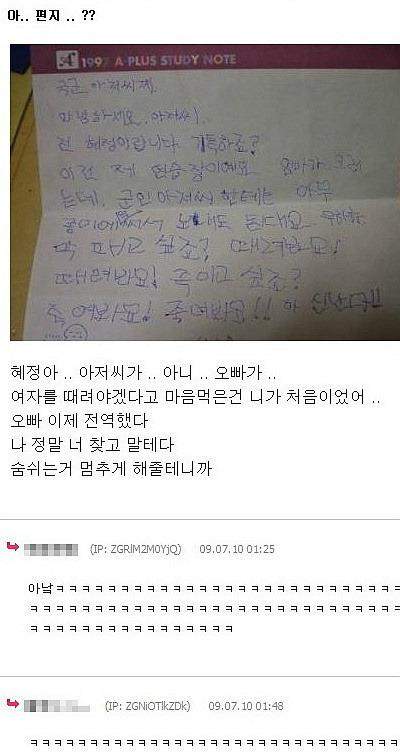 아.. 편지 .. ??
A 1997 A-PLUS STUDY NOTE
국군 아저씨께.
안녕하세요. 아저씨.
전 혜정이랍니다. 기특하죠?
이건 제 연습장이예요 엄마가
는데, 군인 아저씨 한테는 아무
종이에 써서 보내도 된대요
막 패고 싶죠? 때려봐요!
때려봐요! 죽이고 싶죠?
죽여봐요! 죽여봐요!! 아 신난다!!
혜정아 .. 아저씨가 .. 아니 .. 오빠가 ..
여자를 때려야겠다고 마음먹은건 니가 처음이었어 ..
오빠 이제 전역했다
나 정말 너 찾고 말테다
숨쉬는거 멈추게 해줄테니까
(IP: ZGRlM2M0YjQ) 09.07.10 01:25
아낰ㅋㅋㅋㅋㅋㅋㅋㅋㅋㅋㅋㅋㅋㅋㅋㅋㅋㅋㅋㅋㅋㅋㅋㅋㅋ
ㅋㅋㅋㅋㅋㅋㅋㅋㅋㅋㅋㅋㅋㅋㅋㅋㅋㅋㅋㅋㅋㅋㅋㅋㅋㅋㅋ
ㅋㅋㅋㅋㅋㅋㅋㅋㅋㅋㅋㅋㅋㅋㅋ
(IP: ZGNiOTlkZDk) 09.07.10 01:48
ㅋㅋㅋㅋㅋㅋㅋㅋㅋㅋㅋㅋㅋㅋㅋㅋㅋㅋㅋㅋㅋㅋㅋㅋㅋㅋㅋ